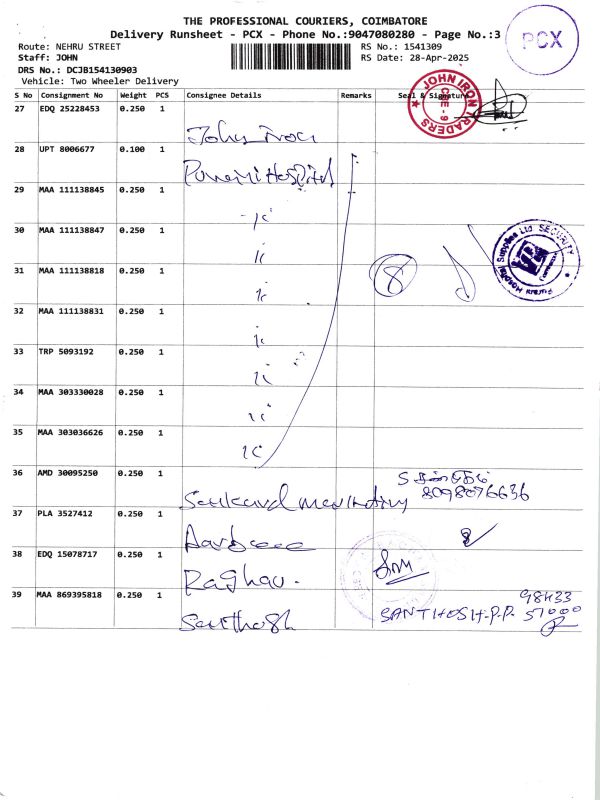 THE PROFESSIONAL COURIERS, COIMBATORE
Delivery Runsheet - PCX - Phone No.:9047080280 - Page No.:3
PCX
Route: NEHRU STREET
RS No.: 1541309
Staff: JOHN
RS Date: 28-Apr-2025
DRS No.: DCJB154130903
Vehicle: Two Wheeler Delivery
S No Consignment No Weight PCS Consignee Details Remarks Seal & Signature
JOHN IRON TRADERS
CBE - 9
27 EDQ 25228453 0.250 1 John Iron
28 UPT 8006677 0.100 1 Hospital
29 MAA 111138845 0.250 1
30 MAA 111138847 0.250 1
Hospital Supplies Ltd SECURITY
31 MAA 111138818 0.250 1
8
32 MAA 111138831 0.250 1
33 TRP 5093192 0.250 1
34 MAA 303330028 0.250 1
35 MAA 303036626 0.250 1
36 AMD 30095250 0.250 1
8098076636
37 PLA 3527412 0.250 1
38 EDQ 15078717 0.250 1 Raghav.
39 MAA 869395818 0.250 1 Santhosh
SANTHOSH.P.P. 98433 51000